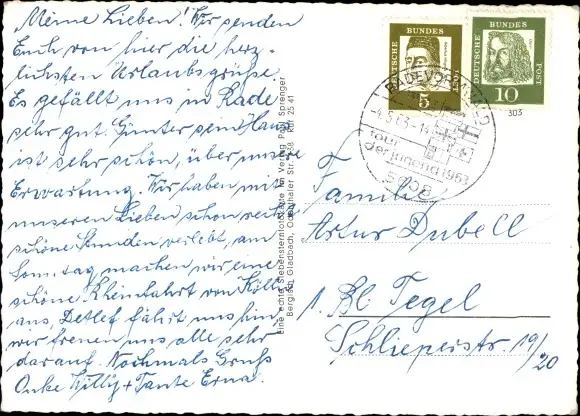 Meine Lieben! Wir senden
Euch von hier die herz-
lichsten Urlaubsgrüße.
Es gefällt uns in Rade
sehr gut. Günter sein Haus
ist sehr schön, über unsere
Erwartung. Wir haben mit
unseren Lieben schon recht
schöne Stunden verlebt, am
Sonntag machen wir eine
schöne Rheinfahrt von Köln
aus, Detlef fährt uns hin,
wir freuen uns alle sehr
darauf. Nochmals Gruß
Onke Willy + Tante Erna.
Eine echte Siebensterntofotokarte Verlag Paul Sprenger
Bergisch Gladbach, Odenthaler Str. 238 Ruf 25 41
DEUTSCHE BUNDES POST
5
DEUTSCHE BUNDES POST
10
303
RADEVORMWALD
-4.5.63-14
Tour
der Jugend 1963
5608
Familie
Artur Dubell
1. Bl. Tegel
Schlieperstr. 19/
20